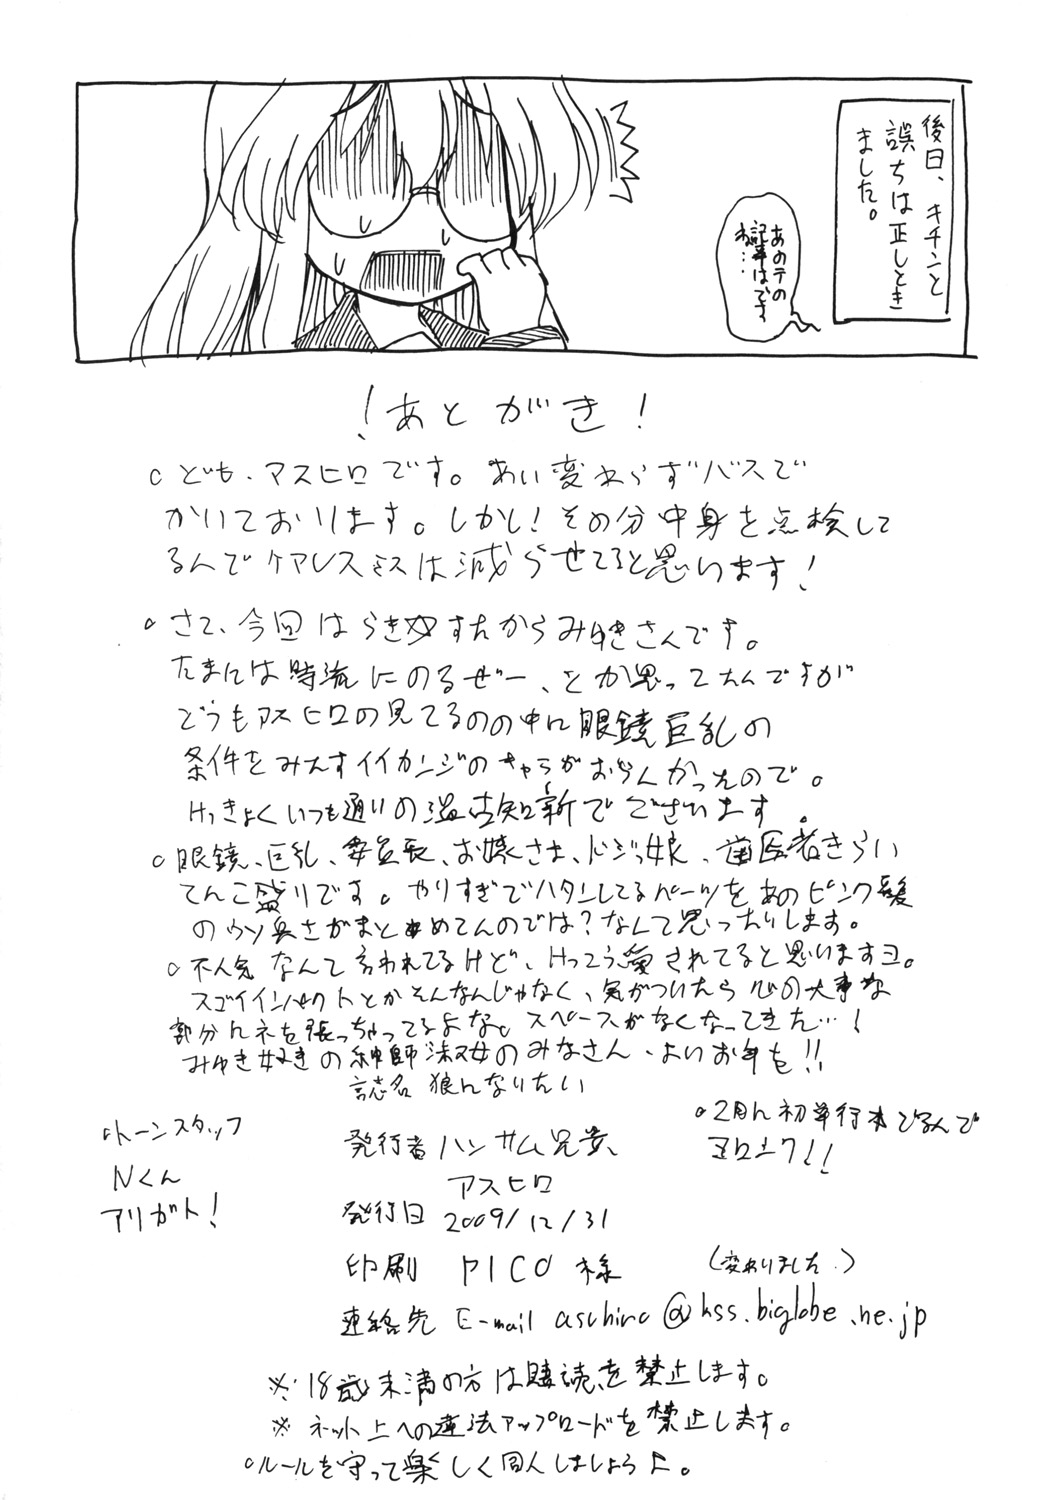 後日、キチンと
誤ちは正しとき
ました。
あのテの
記事はです
ね…
！あとがき！
○ども、アスヒロです。あい変わらずバスで
かいております。しかし！その分中身を点検して
るんでケアレスミスは減らせてると思います！
○さて、今回はらき☆すたからみゆきさんです。
たまには時流にのるぜー、とか思ってたんですが
どうもアスヒロの見てるのの中に眼鏡巨乳の
条件をみたすイイカンジのキャラがおらんかったので。
けっきょくいつも通りの温古知新でございます。
○眼鏡、巨乳、委員長、お嬢さま、ドジっ娘、歯医者きらい
てんこ盛りです。やりすぎでハタンしてるパーツをあのピンク髪
のウソ臭さがまとめてんのでは？なんて思ったりします。
○不人気なんて言われてるけど、けっこう愛されてると思いますヨ。
スゴイインパクトとかそんなんじゃなく、気がついたら心の大事な
部分にネを張っちゃってるよな。スペースがなくなってきた…！
みゆき好きの紳師淑女のみなさん、よいお年を!!
誌名 狼になりたい
○トーンスタッフ
Nくん
アリガト！
発行者 ハンサム兄貴、
アスヒロ
発行日 2009/12/31
印刷 PICO様
連絡先 E-mail asuhiro@kss.biglobe.ne.jp
○2月に初単行本でるんで
ヨロシク!!
(変わりました。)
※18歳未満の方は購読を禁止します。
※ネット上への違法アップロードを禁止します。
○ルールを守って楽しく同人しましょうよ。